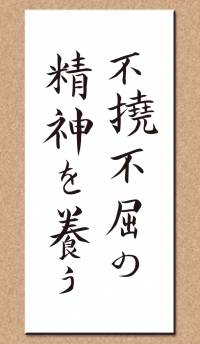 不撓不屈の
精神を養う